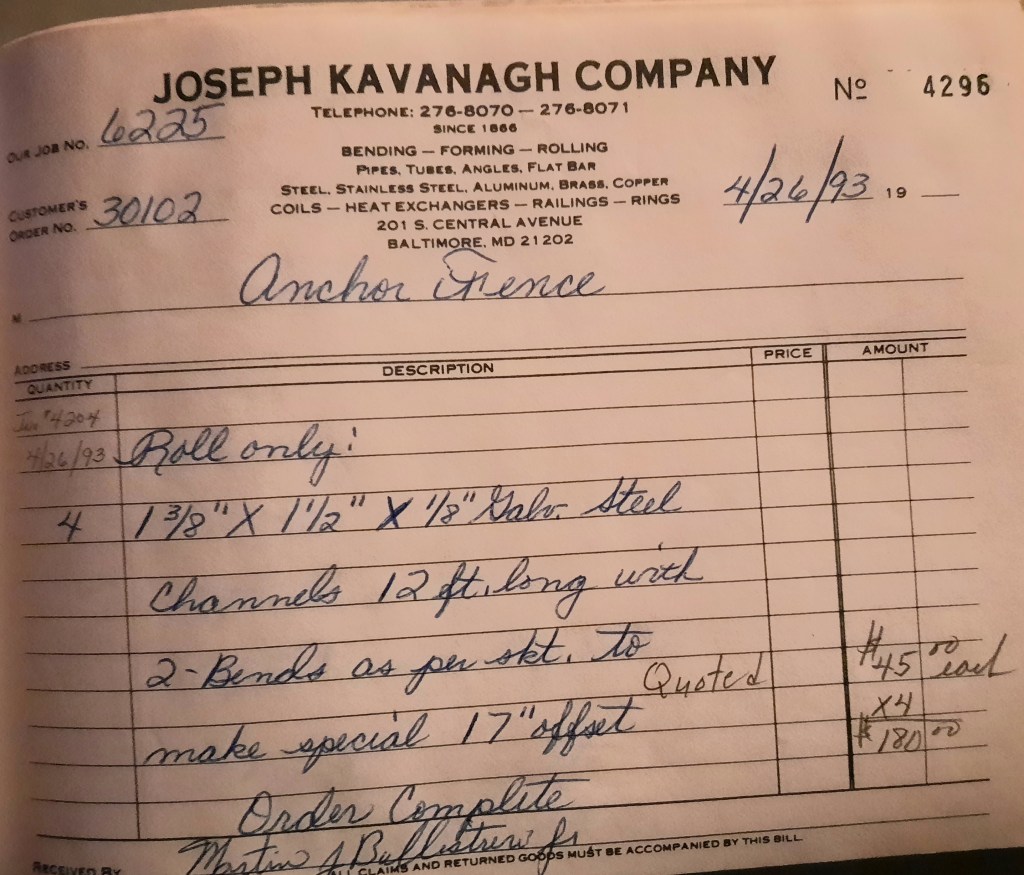 JOSEPH KAVANAGH COMPANY
Nº 4296
TELEPHONE: 276-8070 — 276-8071
SINCE 1866
OUR JOB NO. 6225
BENDING — FORMING — ROLLING
PIPES, TUBES, ANGLES, FLAT BAR
STEEL, STAINLESS STEEL, ALUMINUM, BRASS, COPPER
CUSTOMER'S ORDER NO. 30102
COILS — HEAT EXCHANGERS — RAILINGS — RINGS
4/26/93 19
201 S. CENTRAL AVENUE
BALTIMORE, MD 21202
M Anchor Fence
ADDRESS
QUANTITY DESCRIPTION PRICE AMOUNT
#4204
4/26/93 Roll only:
4 1 3/8" X 1 1/2" X 1/8" Galv. Steel
Channels 12 ft. long with
2-Bends as per skt. to
Quoted $45 00 each
X4
make special 17" offset
$180 00
Order Complete
RECEIVED BY Martin J
ALL CLAIMS AND RETURNED GOODS MUST BE ACCOMPANIED BY THIS BILL.